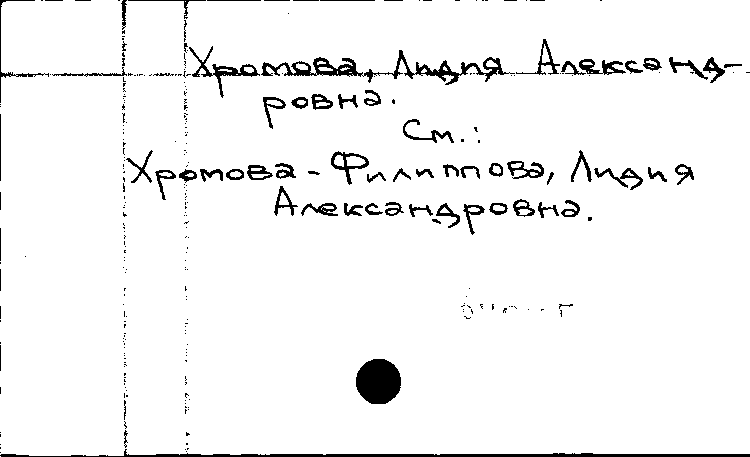 Хромова, Лидия Александ-
ровна.
См.:
Хромова-Филиппова, Лидия
Александровна.